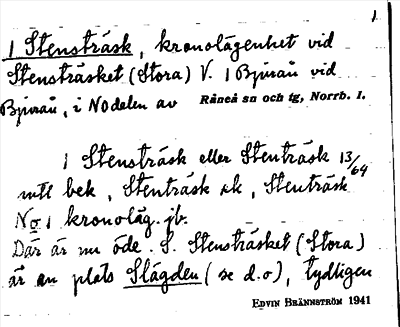 1
1 Stensträsk, kronolägenhet vid
Stensträsket (Stora) V. 1 Bjuraå vid
Bjuraå, i NOdelen av Råneå sn och tg, Norrb. l.
1 Stensträsk eller Stenträsk 13/64
utl bek, Stenträsk sk, Stenträsk
No 1 kronoläg. jb.
Där är nu öde. S. Stensträsket (Stora)
är en plats Slägden (se d.o), tydligen
EDVIN BRÄNNSTRÖM 1941